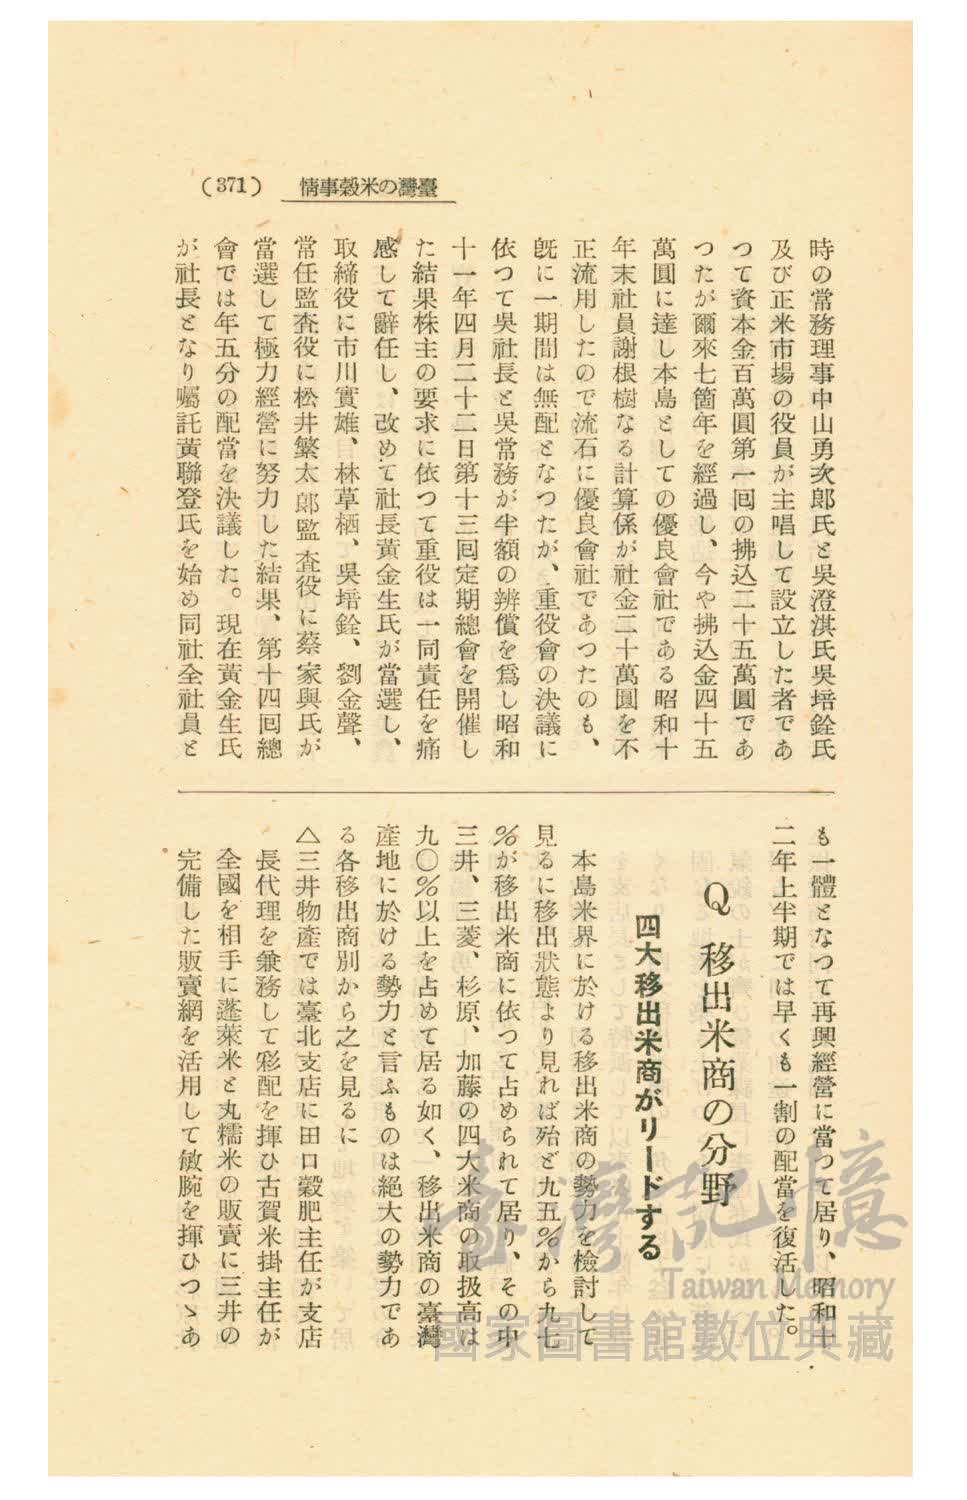 (371) 情事穀米の灣臺
時の常務理事中山勇次郎氏と吳澄淇氏吳培銓氏
及び正米市場の役員が主唱して設立した者であ
つて資本金百萬圓第一囘の拂込二十五萬圓であ
つたが爾來七箇年を經過し、今や拂込金四十五
萬圓に達し本島としての優良會社である昭和十
年末社員謝根樹なる計算係が社金二十萬圓を不
正流用したので流石に優良會社であつたのも、
旣に一期間は無配となつたが、重役會の決議に
依つて吳社長と吳常務が半額の辨償を爲し昭和
十一年四月二十二日第十三囘定期總會を開催し
た結果株主の要求に依つて重役は一同責任を痛
感して辭任し、改めて社長黃金生氏が當選し、
取締役に市川實雄、林草栖、吳培銓、劉金聲、
常任監査役に松井繁太郎監査役に蔡家與氏が
當選して極力經營に努力した結果、第十四囘總
會では年五分の配當を決議した。現在黃金生氏
が社長となり囑託黃聯登氏を始め同社全社員と
も一體となつて再興經營に當つて居り、昭和十
二年上半期では早くも一割の配當を復活した。
Q 移出米商の分野
四大移出米商がリードする
本島米界に於ける移出米商の勢力を檢討して
見るに移出狀態より見れば殆ど九五%から九七
%が移出米商に依つて占められて居り、その中
三井、三菱、杉原、加藤の四大米商の取扱高は
九〇%以上を占めて居る如く、移出米商の臺灣
產地に於ける勢力と言ふものは絕大の勢力であ
る各移出商別から之を見るに
△三井物產では臺北支店に田口穀肥主任が支店
長代理を兼務して彩配を揮ひ古賀米掛主任が
全國を相手に蓬萊米と丸糯米の販賣に三井の
完備した販賣網を活用して敏腕を揮ひつゝあ
臺灣記憶
Taiwan Memory
國家圖書館數位典藏